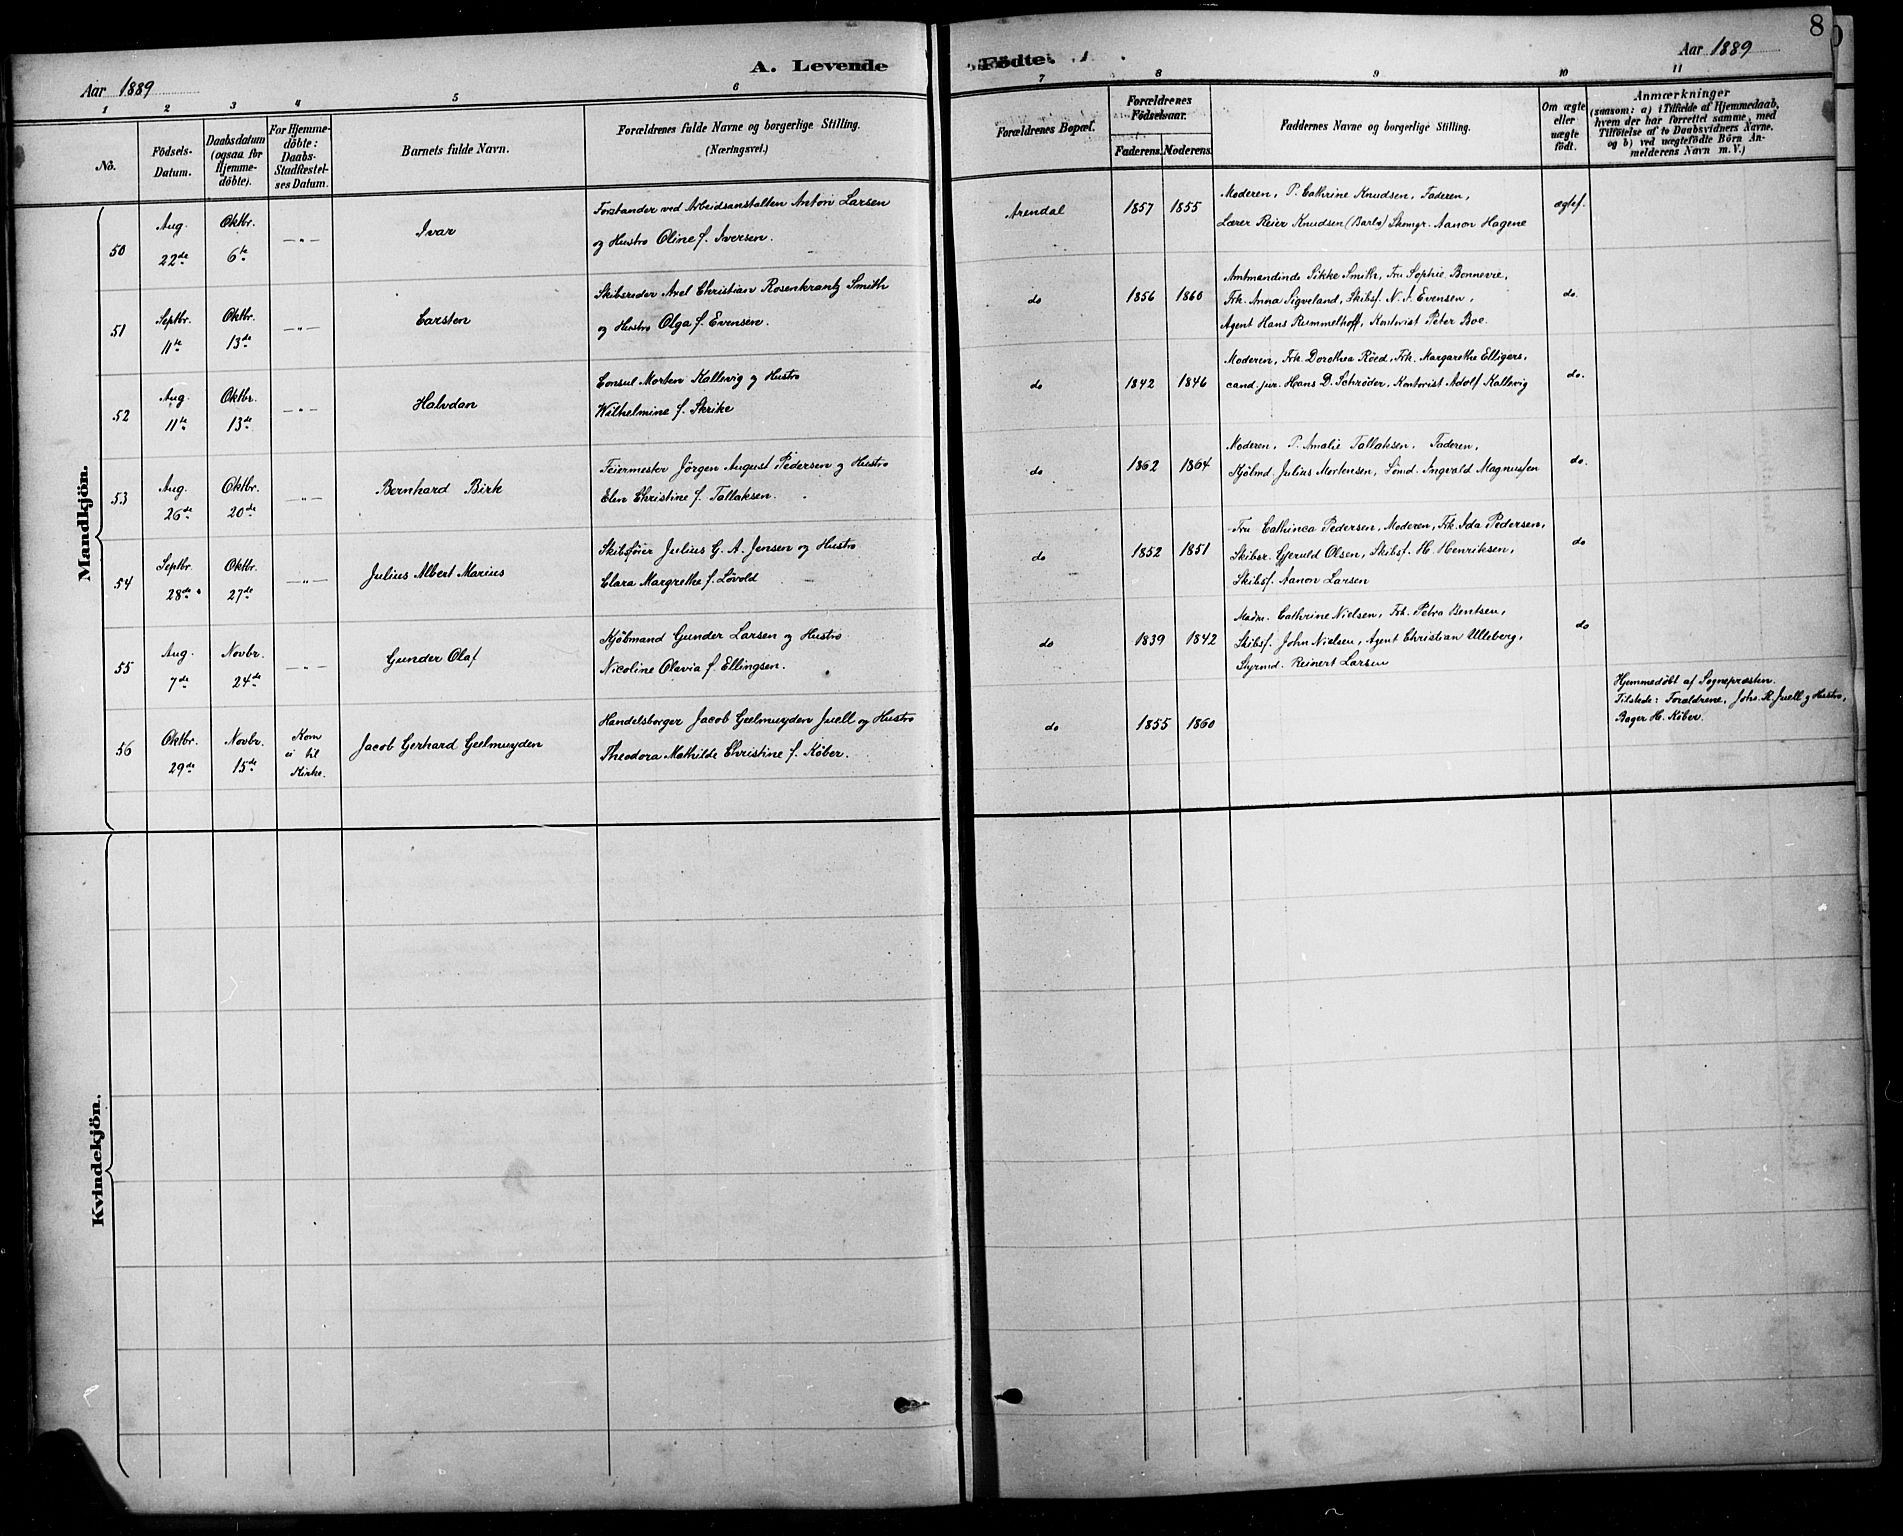 8
Aar 1889
A. Levende
Födte.
Aar 1889
1 2 3 4 5 6 7 8 9 10 11
No.
Födsels-
Datum.
Daabsdatum
(ogsaa for
Hjemme-
döbte).
For Hjemme-
döbte:
Daabs-
Stadfæstel-
ses Datum.
Barnets fulde Navn.
Forældrenes fulde Navne og borgerlige Stilling.
(Næringsvei.)
Forældrenes Bopæl.
Forældrenes
Födselsaar.
Faderens. Moderens.
Faddernes Navne og borgerlige Stilling.
Om ægte
eller
uægte
födt.
Anmærkninger
(saasom: a) i Tilfælde af Hjemmedaab,
hvem der har forrettet samme, med
Tilföielse af to Daabsvidners Navne.
og b) ved uægtefödte Börn An-
melderens Navn m. V.)
Mandkjön.
50
Aug.
22de
Oktbr.
6te
—"—
Ivar
Forstander ved Arbeidsanstalten Anton Larsen
og Hustro Oline f. Iversen.
Arendal
1857 1855
Moderen, P. Cathrine Knudsen, Faderen,
Lærer Reier Knudsen (Barbo) Skomgr. Aanon Hagene
ægtef.
51
Septbr.
11te
Oktbr.
13de
—"—
Carsten
Skibsreder Axel Christian Rosenkrantz Smith
og Hustro Olga f. Evensen.
do
1856 1860
Amtmandinde Sikke Smith, Fru Sophie Bonnevie,
Frk. Anna Sigveland, Skibsf. N. J. Evensen,
Agent Hans Rummelhoff, Kontorist Peter Boe.
do.
52
Aug.
11te
Oktbr.
13de
—"—
Halvdan
Consul Morten Kallevig og Hustro
Wilhelmine f. Skrike
do
1842 1846
Moderen, Frk. Dorothea Röed, Frk. Margarethe Elligers,
cand. jur. Hans D. Schröder, Kontorist Adolf Kallevig
do.
53
Aug.
26de
Oktbr.
20de
—"—
Bernhard Birk
Feiermester Jörgen August Pedersen og Hustro
Elen Christine f. Tallaksen.
do
1862 1864
Moderen, P. Amalie Tallaksen, Faderen,
Kjölmd. Julius Mortensen, Sömd. Ingvald Magnussen
do.
54
Septbr.
28de
Oktbr.
27de
—"—
Julius Albert Marius
Skibsförer Julius G. A. Jensen og Hustro
Clara Margrethe f. Lövold
do
1852 1851
Fru Cathinca Pedersen, Moderen, Frk. Ida Pedersen,
Skibsr. Gjeruld Olsen, Skibsf. H. Henriksen,
Skibsf. Aanon Larsen
do
55
Aug.
7de
Novbr.
24de
—"—
Gunder Olaf
Kjöbmand Gunder Larsen og Hustro
Nicoline Olavia f. Ellingsen.
do
1839 1842
Madm. Cathrine Nielsen, Frk. Petra Bentsen,
Skibsf. John Nielsen, Agent Christian Ulleberg,
Styrmd. Reinert Larsen
do
56
Oktbr.
29de
Novbr.
15de
Kom
ei til
Kirke.
Jacob Gerhard Geelmuyden
Handelsborger Jacob Geelmuyden Juell og Hustro
Theodora Mathilde Christine f. Köber.
do
1855 1860
Hjemmedöbt af Sognepræsten.
Tilstede: Forældrene, Johs. R. Juell og Hustro,
Bager H. Köber.
Kvindekjön.